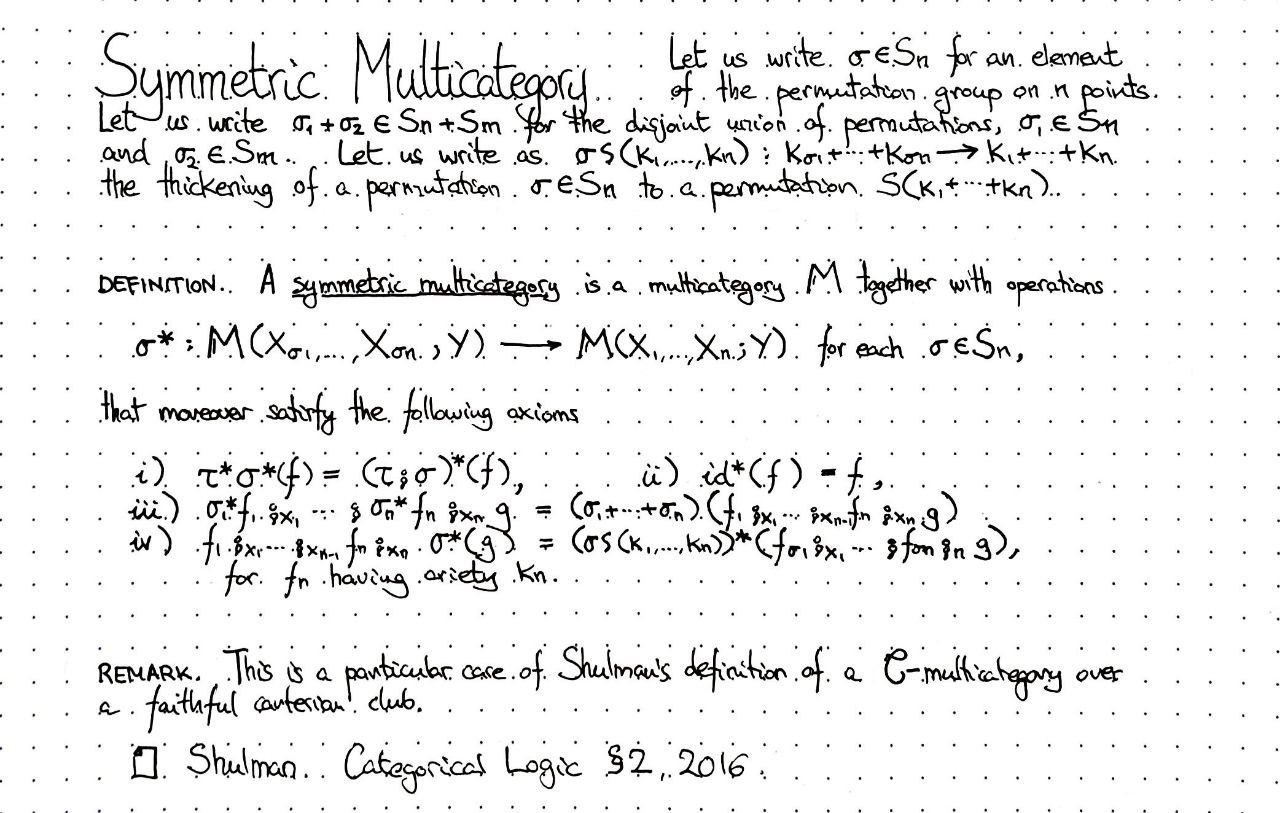 Symmetric Multicategory
Let us write σ∈Sn for an element
of the permutation group on n points.
Let us write σ₁+σ₂ ∈ Sn+Sm for the disjoint union of permutations, σ₁ ∈ Sn
and σ₂ ∈ Sm. Let us write as σS(k₁,...,kn) : kσ₁+···+kσn → k₁+···+kn
the thickening of a permutation σ∈Sn to a permutation S(k₁+···+kn).
DEFINITION. A symmetric multicategory is a multicategory M together with operations
σ* : M(Xσ₁,...,Xσn ; Y) → M(X₁,...,Xn; Y) for each σ∈Sn,
that moreover satisfy the following axioms
i) τ*σ*(f) = (τ⨾σ)*(f), ii) id*(f) = f,
iii) σ₁*f₁ ⨾x₁ ··· ⨾ σn*fn ⨾xn g = (σ₁+···+σn)(f₁ ⨾x₁ ··· ⨾xn-1 fn ⨾xn g)
iv) f₁ ⨾x₁ ··· ⨾xn-1 fn ⨾xn σ*(g) = (σS(k₁,...,kn))*(fσ₁ ⨾x₁ ··· ⨾ fσn ⨾n g),
for fn having ariety kn.
REMARK. This is a particular case of Shulman's definition of a C-multicategory over
a faithful cartesian club.
Shulman. Categorical Logic §2, 2016.